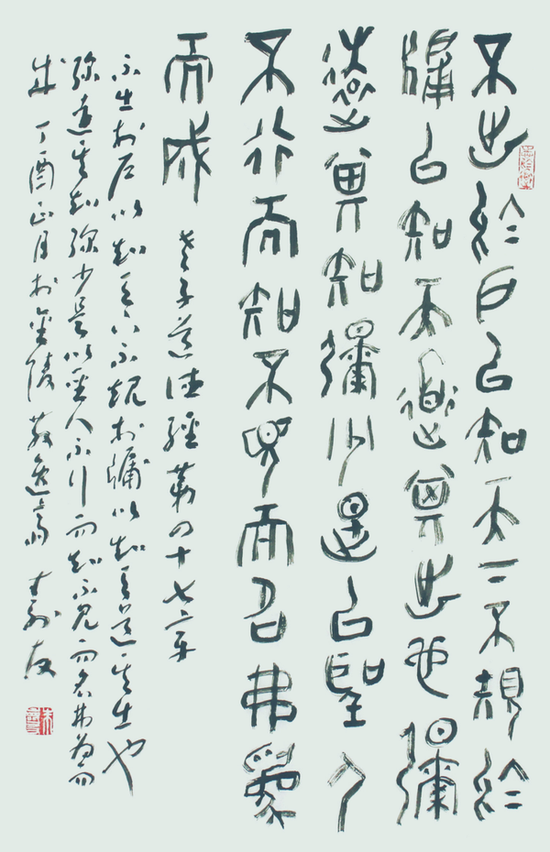 不出於户以知天下不規於
牖以知天道其出也彌
遠其知彌少是以聖人
不行而知不見而名弗爲
而成 老子道德經第四十七章
不出於户以知天下不規於牖以知天道其出也
弥遠其知弥少是以聖人不行而知不見而名弗為而
成 丁酉正月於金陵